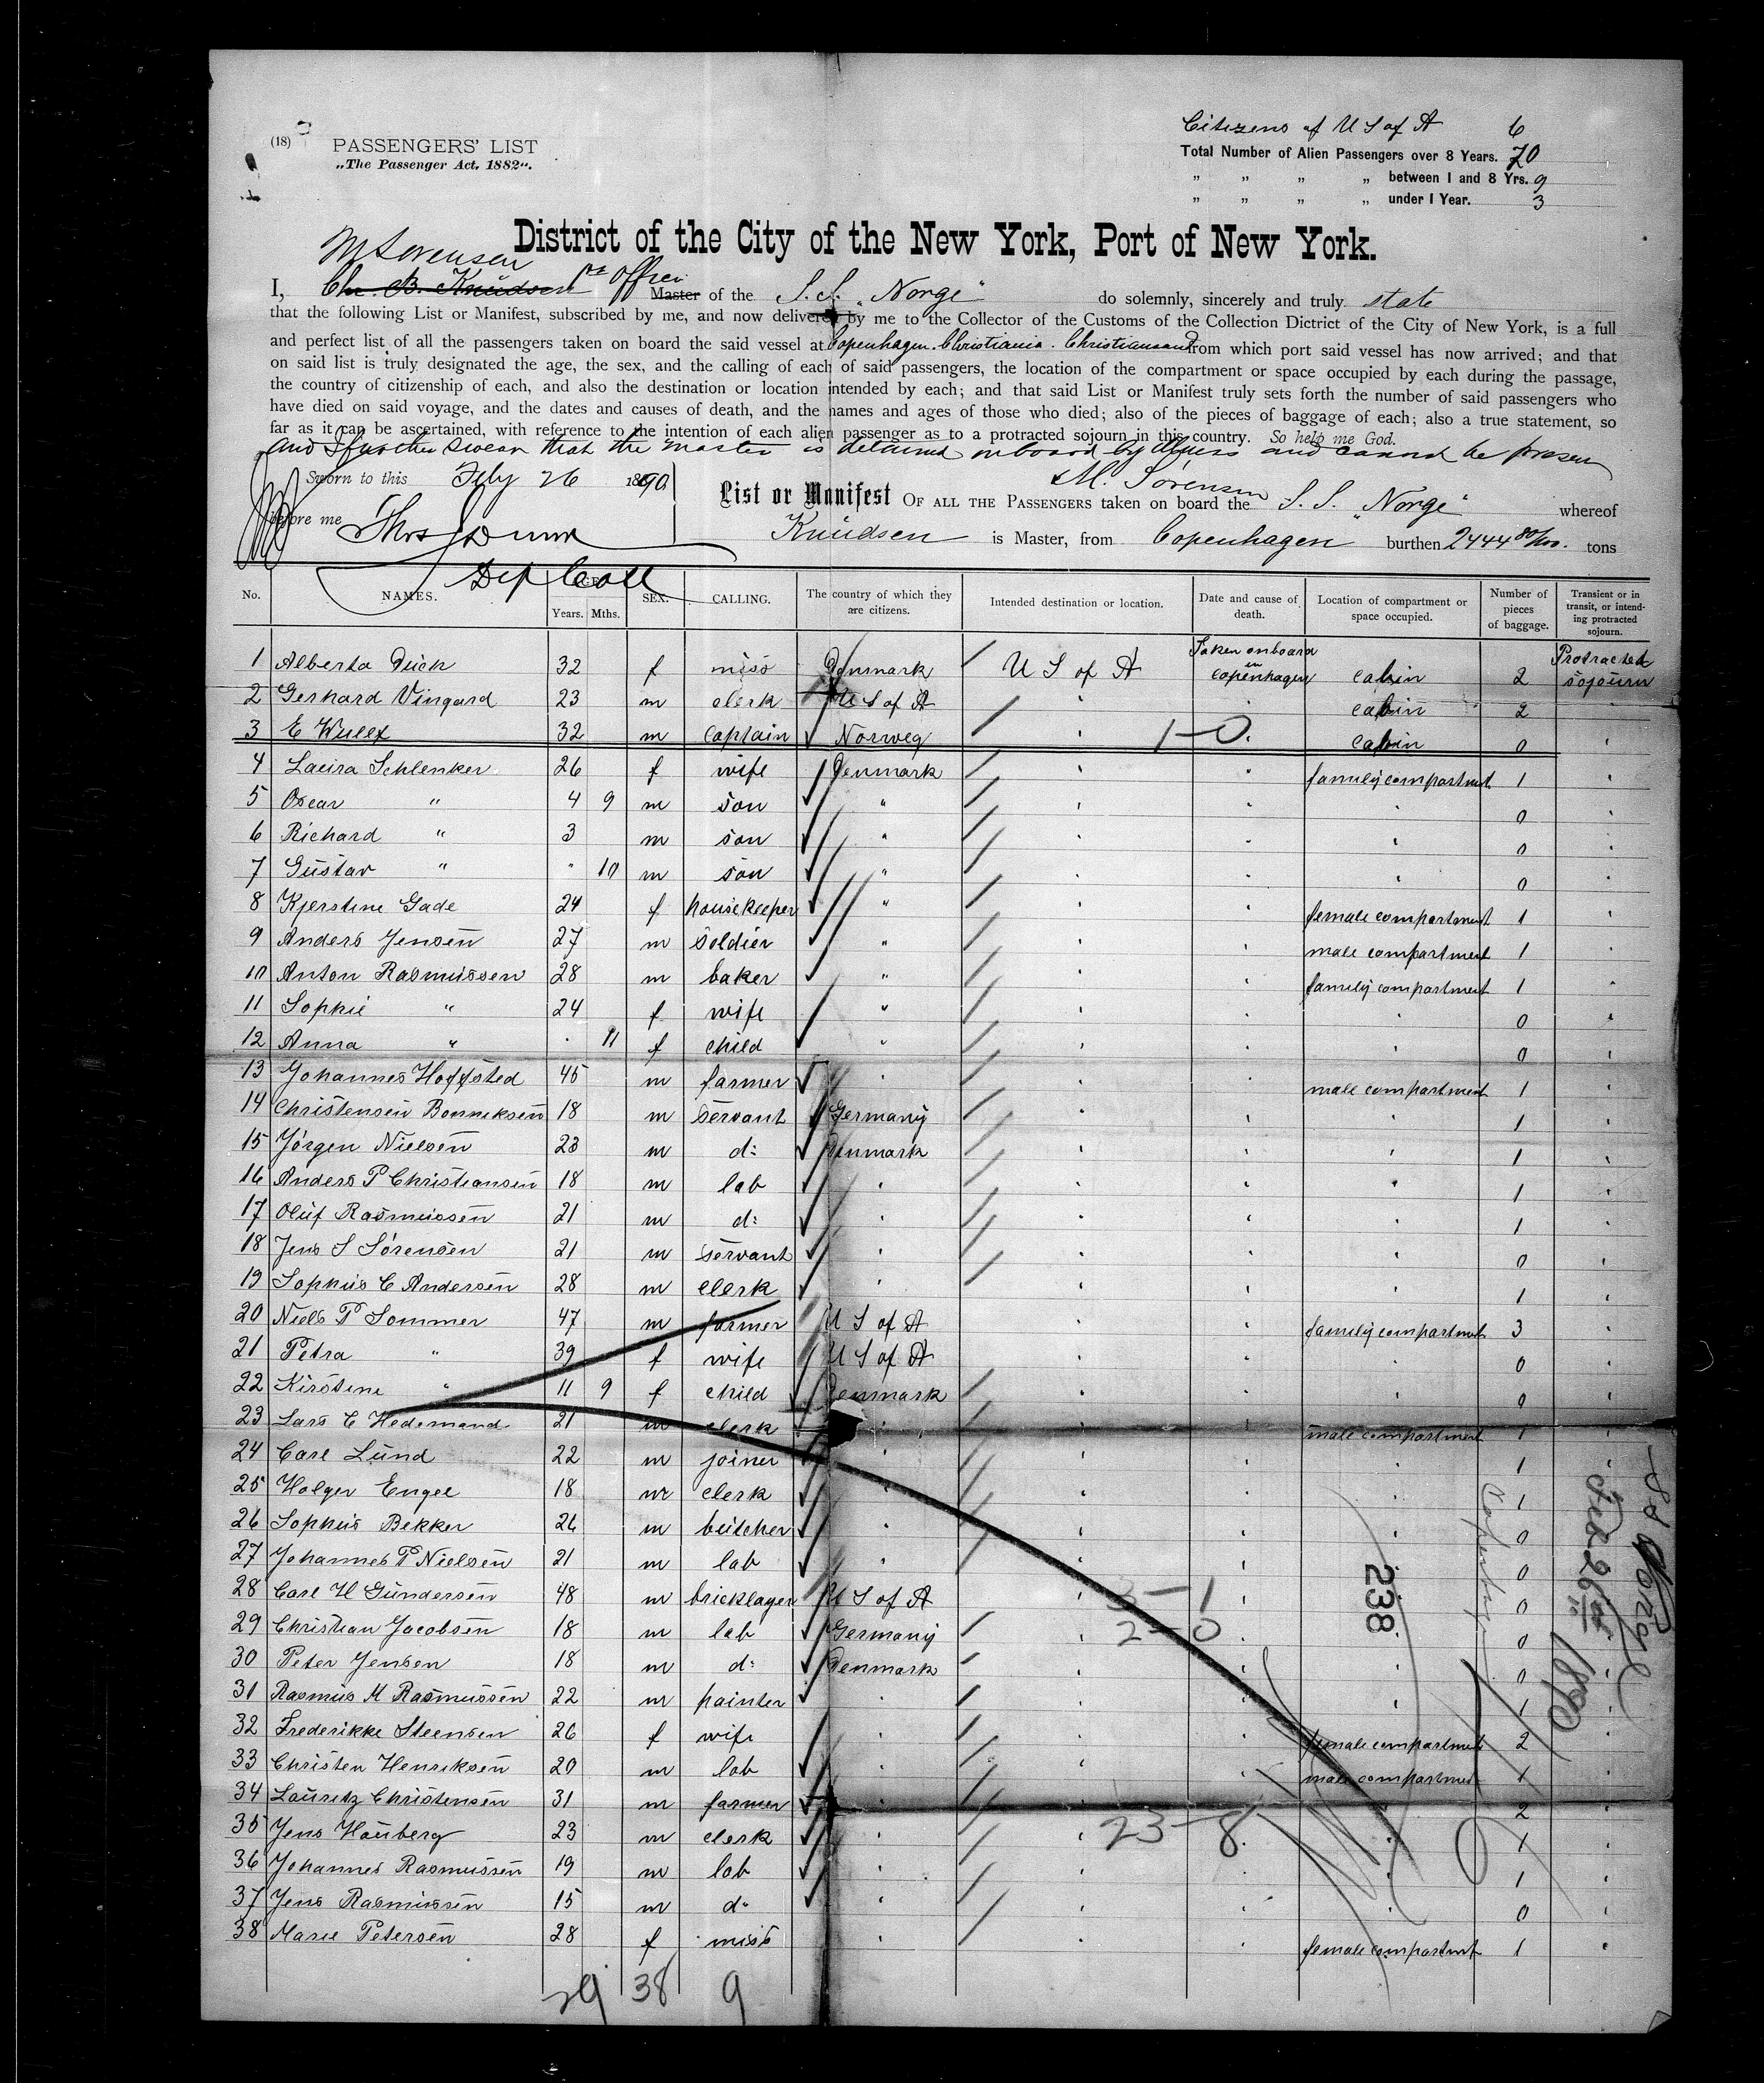 (18)
PASSENGERS' LIST
„The Passenger Act, 1882“.
Citizens of U S of A 6
Total Number of Alien Passengers over 8 Years. 70
„ „ „ „ between 1 and 8 Yrs. 9
„ „ „ „ under 1 Year. 3
District of the City of the New York, Port of New York.
M Sorensen
I, Chr. B. Knudsen 1st Officer Master of the S.S. „Norge“ do solemnly, sincerely and truly state
that the following List or Manifest, subscribed by me, and now delivered by me to the Collector of the Customs of the Collection District of the City of New York, is a full
and perfect list of all the passengers taken on board the said vessel at Copenhagen. Christiania. Christiansand from which port said vessel has now arrived; and that
on said list is truly designated the age, the sex, and the calling of each of said passengers, the location of the compartment or space occupied by each during the passage,
the country of citizenship of each, and also the destination or location intended by each; and that said List or Manifest truly sets forth the number of said passengers who
have died on said voyage, and the dates and causes of death, and the names and ages of those who died; also of the pieces of baggage of each; also a true statement, so
far as it can be ascertained, with reference to the intention of each alien passenger as to a protracted sojourn in this country. So help me God.
and I further swear that the master is detained onboard by illness and cannot be present
M. Sörensen
Sworn to this Feby 26 1890
before me Thos J Dunn
Dep Coll
List or Manifest OF ALL THE PASSENGERS taken on board the S. S. „Norge“ whereof
Knudsen is Master, from Copenhagen burthen 2444 80/100. tons
No. NAMES. AGE. Years. Mths. SEX. CALLING. The country of which they are citizens. Intended destination or location. Date and cause of death. Location of compartment or space occupied. Number of pieces of baggage. Transient or in transit, or intending protracted sojourn.
1 Alberta Dück 32 f miss Denmark U S of A Taken onboard in Copenhagen cabin 2 Protracted sojourn
2 Gerhard Vingard 23 m clerk U S of A cabin 2
3 E Wulff 32 m captain Norweg 1-0 cabin 0
4 Laura Schlenker 26 f wife Denmark family compartment 1
5 Oscar " 4 9 m son " 0
6 Richard " 3 m son " 0
7 Gustav " " 10 m son " 0
8 Kjerstine Gade 24 f housekeeper " female compartment 1
9 Anders Jensen 27 m soldier " male compartment 1
10 Anton Rasmussen 28 m baker " family compartment 1
11 Sophie " 24 f wife " 0
12 Anna " 11 f child " 0
13 Johannes Hoffsted 45 m farmer male compartment 1
14 Christensen Bonneksen 18 m servant Germany 1
15 Jörgen Nielsen 23 m d: Denmark 1
16 Anders P Christiansen 18 m lab 1
17 Oluf Rasmussen 21 m d: 1
18 Jens S Sörensen 21 m servant 0
19 Sophus C Andersen 28 m clerk 1
20 Niels P Sommer 47 m farmer U S of A family compartment 3
21 Petra " 39 f wife U S of A 0
22 Kirstine " 11 9 f child Denmark 0
23 Lars C Hedemand 21 m clerk male compartment 1
24 Carl Lund 22 m joiner 1
25 Holger Engel 18 m clerk 1
26 Sophus Bekker 26 m butcher 0
27 Johannes P Nielsen 21 m lab 0
28 Carl H Gundersen 48 m bricklager U S of A 3-1 0
29 Christian Jacobsen 18 m lab Germany 2-0 0
30 Peter Jensen 18 m d: Denmark 0
31 Rasmus M Rasmussen 22 m painter 1
32 Frederikke Steensen 26 f wife female compartment 2
33 Christen Henriksen 20 m lab male compartment 1
34 Lauritz Christensen 31 m farmer 2
35 Jens Hauberg 23 m clerk 23-8 1
36 Johannes Rasmussen 19 m lab 1
37 Jens Rasmussen 15 m d: 0
38 Marie Petersen 28 f miss female compartment 1
29 38 9
238
Copenhagen
SS Norge
Feb 26th 1890